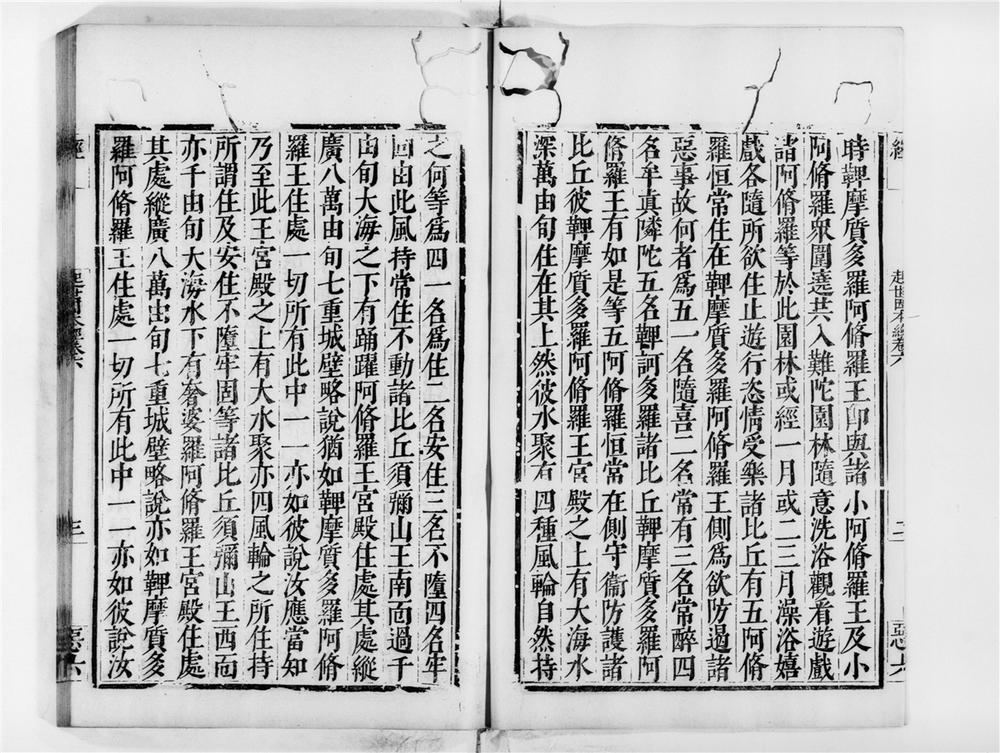 時鞞摩質多羅阿脩羅王即與諸小阿脩羅王及小
阿脩羅眾圍遶共入難陀園林隨意洗浴觀看遊戲
諸阿脩羅等於此園林或經一月或二三月澡浴嬉
戲各隨所欲住止遊行恣情受樂諸比丘有五阿脩
羅恒常住在鞞摩質多羅阿脩羅王側爲欲防遏諸
惡事故何者爲五一名隨喜二名常有三名常醉四
名牟真隣陀五名鞞訶多羅諸比丘鞞摩質多羅阿
脩羅王有如是等五阿脩羅恒常在側守衞防護諸
比丘彼鞞摩質多羅阿脩羅王宮殿之上有大海水
深萬由旬住在其上然彼水聚有四種風輪自然持
之何等爲四一名爲住二名安住三名不墮四名牢
固由此風持常住不動諸比丘須彌山王南面過千
由旬大海之下有踊躍阿脩羅王宮殿住處其處縱
廣八萬由旬七重城壁略說猶如鞞摩質多羅阿脩
羅王住處一切所有此中一一亦如彼說汝應當如
乃至此王宮殿之上有大水聚亦四風輪之所住持
所謂住及安住不墮牢固等諸比丘須彌山王西面
亦千由旬大海水下有奢婆羅阿脩羅王宮殿住處
其處縱廣八萬由旬七重城壁略說亦如鞞摩質多
羅阿脩羅王住處一切所有此中一一亦如彼說汝
經
起世因本經卷六
三
惡六